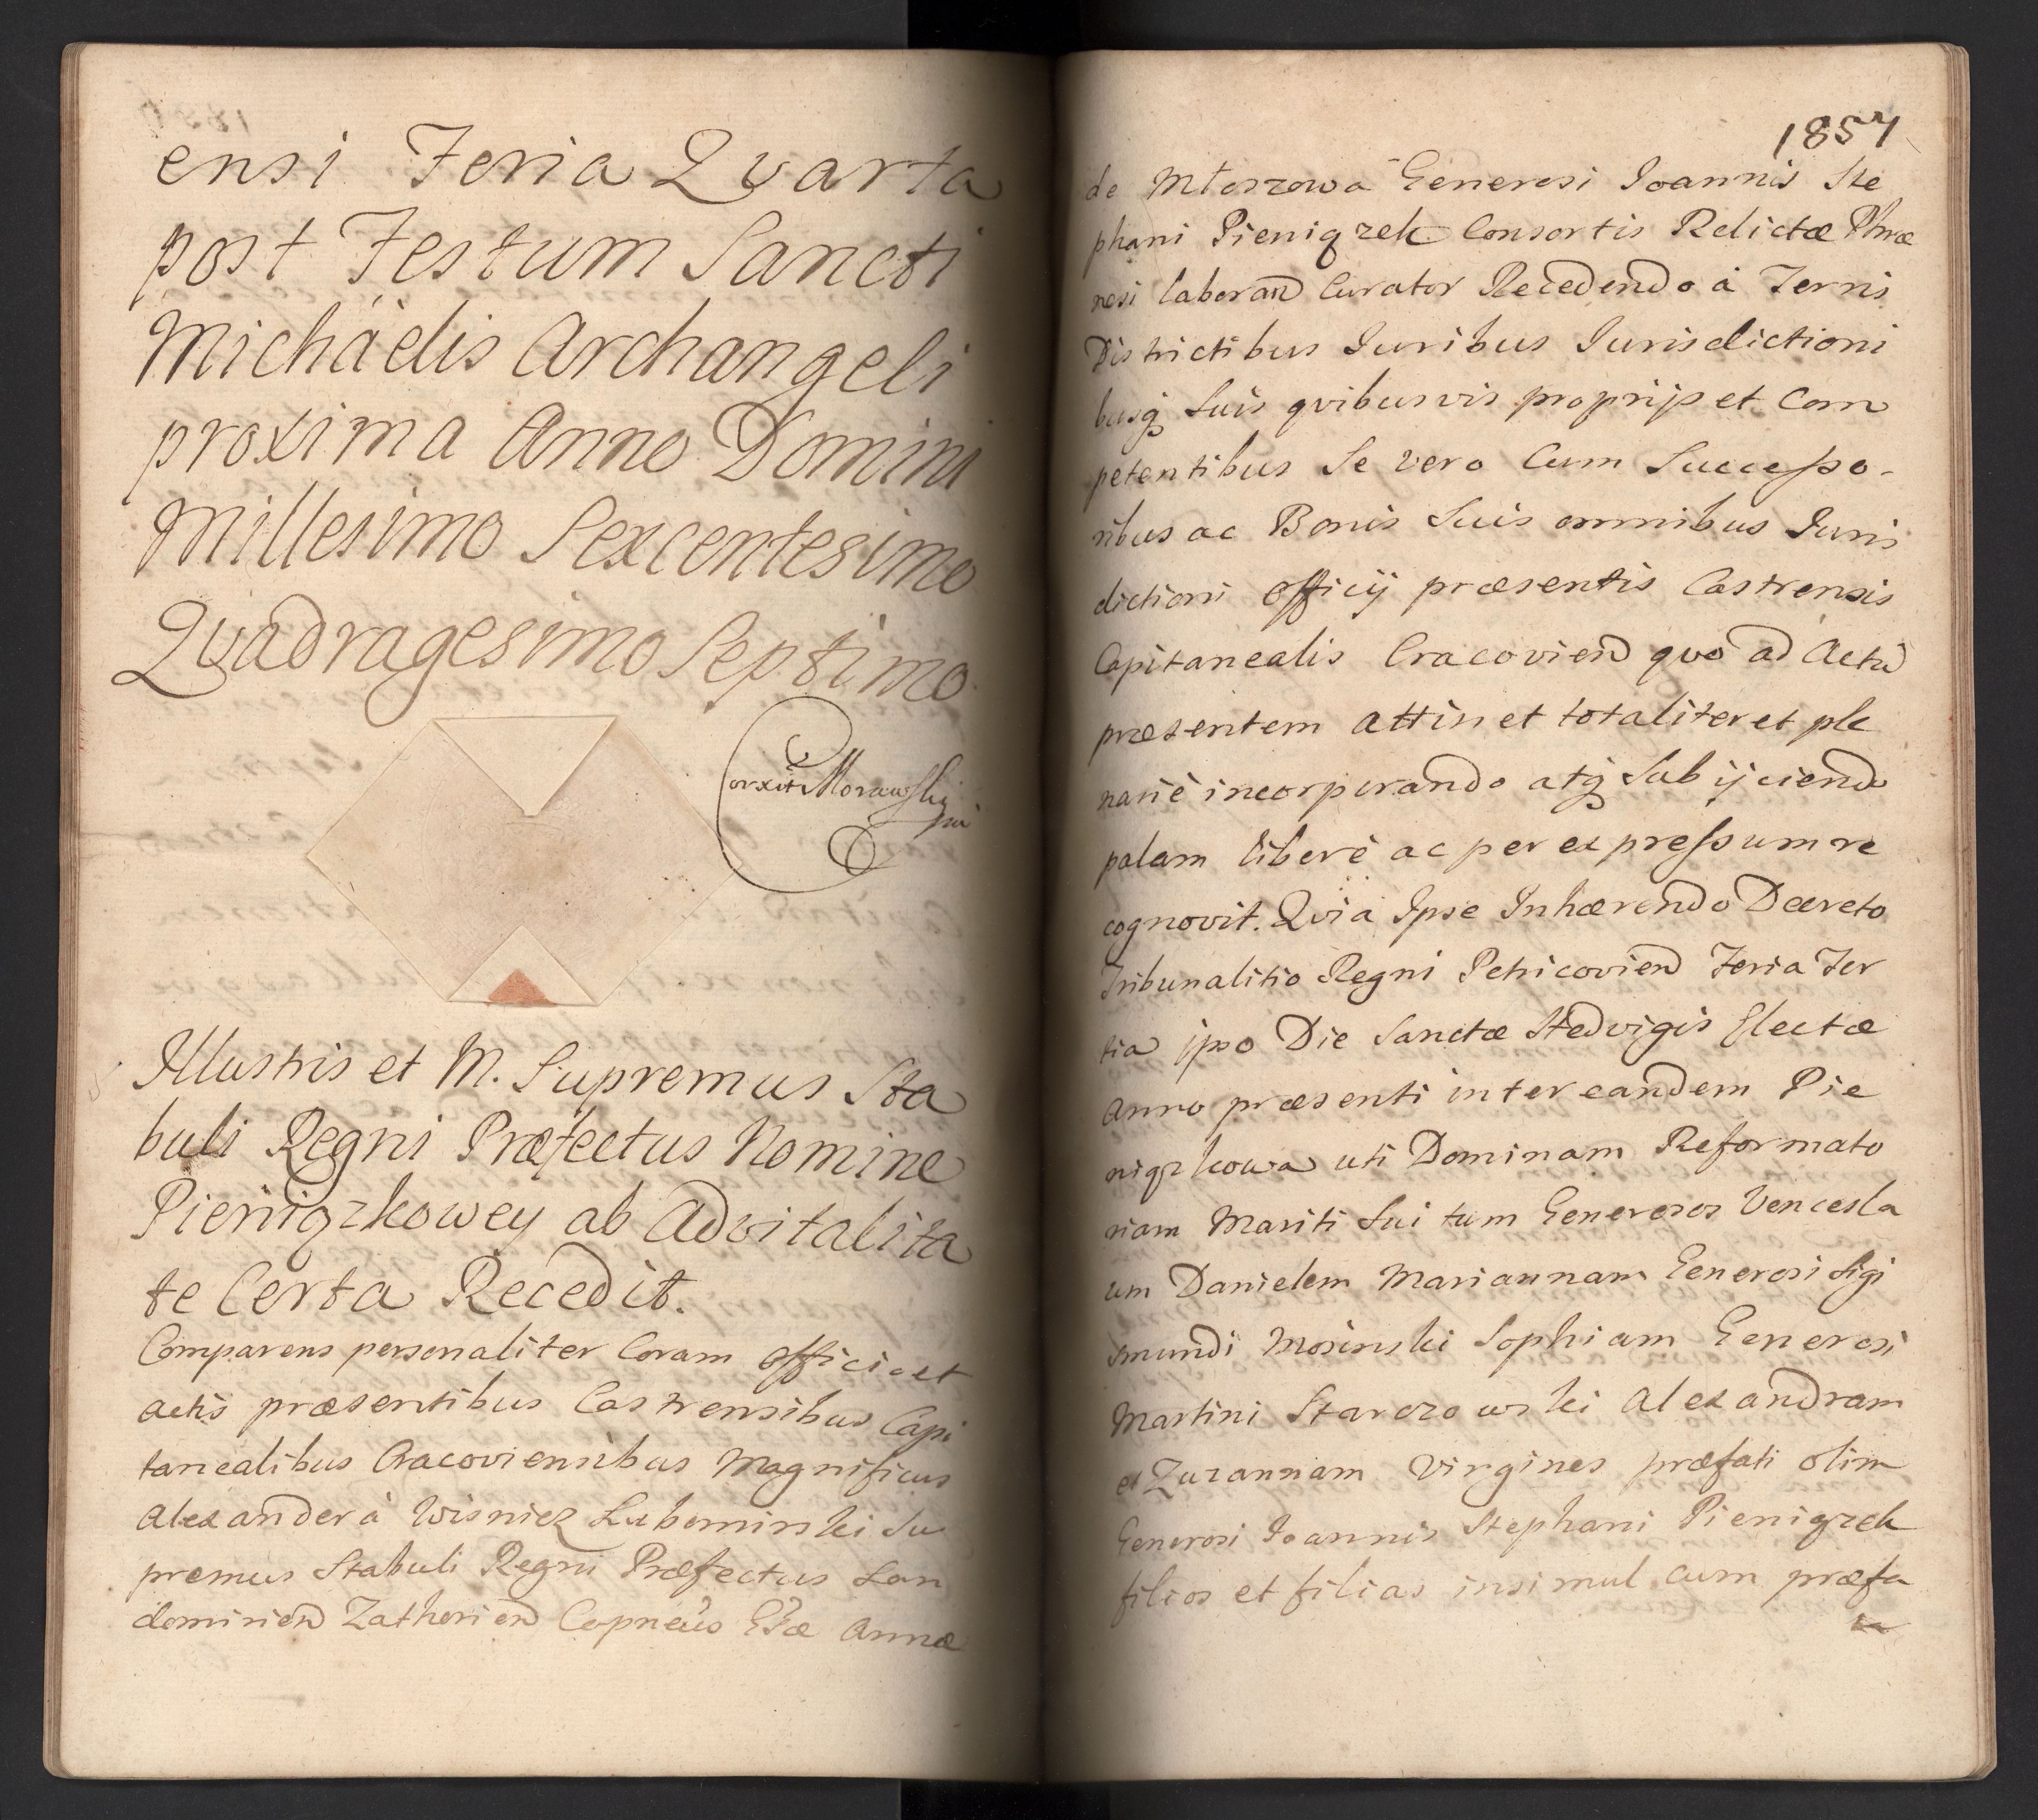 ensi Feria Qvarta
post Festum Sancti
Michaëlis Archangeli
proxima Anno Domini
Millesimo Sexcentesimo
Qvadragesimo Septimo
Corxit Morawski
Illustris et M. Supremus Sta
buli Regni Præfectus Nomine
Pieniążkowey ab Advitalita
te Certa Recedit.
Comparens personaliter Coram officio et
actis præsentibus Castrensibus Capi
tanealibus Cracoviensibus Magnificus
Alexander à Wisnicz Lubomirski Su
premus Stabuli Regni Præfectus San
domirien Zathorien Capneus Gsæ Annæ
1857
de Młoszowa Generosi Joannis Ste
phani Pieniązek Consortis Relictæ Phræ
nesi laboran Curator Recedendo à Terris
Districtibus Juribus Jurisdictioni
busq suis qvibusvis proprijs et Com
petentibus Se vero Cum Successo-
ribus ac Bonis Suis omnibus Juris
dictioni officij præsentis Castrensis
Capitanealis Cracovien qvo ad Actu
præsentem attinet totaliter et ple
nariè incorporando atq Subijciendo
palam liberè ac per expressum re
cognovit. Qvia Ipse Inhærendo Decreto
Tribunalitio Regni Petricovien Feria Ter
tia ipso Die Sanctæ Hedvigis Electæ
Anno præsenti inter eandem Pie
niązkowa uti Dominam Reformato
riam Mariti Sui tum Generosos Vencesla
um Danielem Mariannam Generosi Sigi
smundi Mosinski Sophiam Generosi
Martini Starczowski Alexandram
et Zuzannam Virgines præfati olim
Generosi Joannis Stephani Pieniązek
filios et filias insimul cum præfa